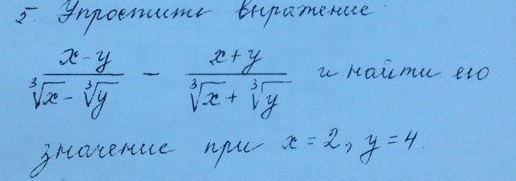 5. Упростить выражение
\frac{x-y}{\sqrt[3]{x}-\sqrt[3]{y}} - \frac{x+y}{\sqrt[3]{x}+\sqrt[3]{y}} и найти его
значение при x=2, y=4